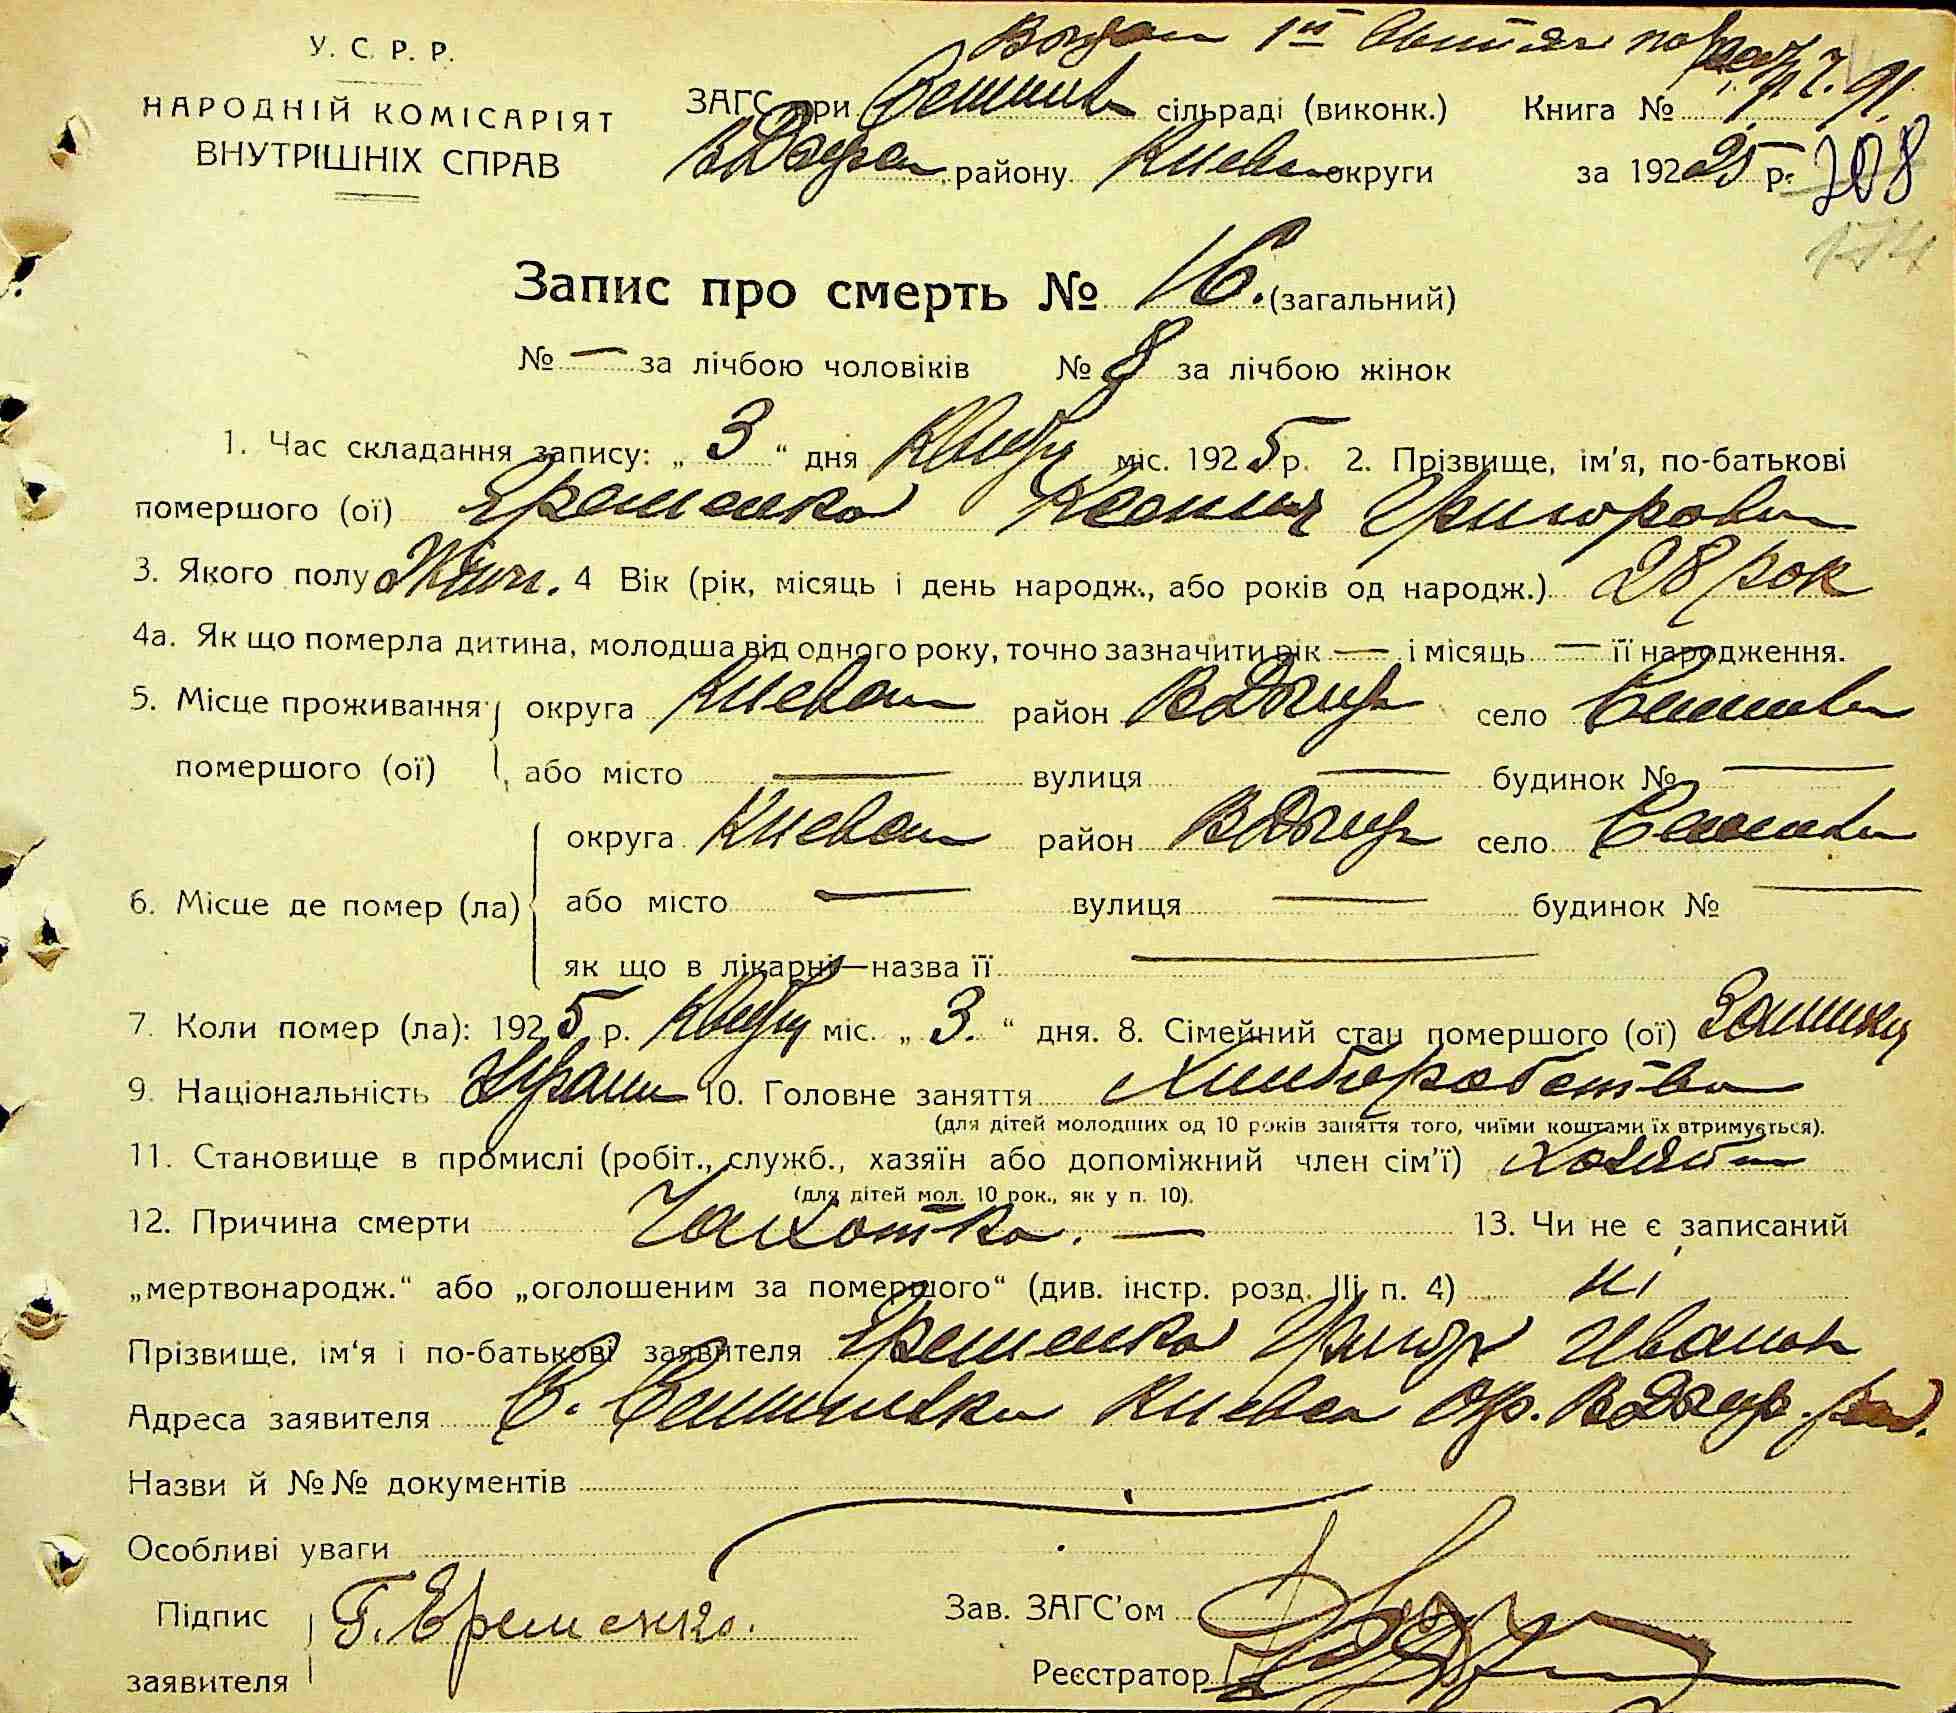 У. С. Р. Р.
НАРОДНІЙ КОМІСАРІЯТ
ВНУТРІШНІХ СПРАВ
ЗАГС при сільраді (виконк.) Книга №
району Киевск округи за 1925 р. 208
174
Запис про смерть № 16. (загальний)
№ — за лічбою чоловіків № 8 за лічбою жінок
1. Час складання запису: „ 3 “ дня Квітн міс. 1925 р. 2. Прізвище, ім'я, по-батькові
помершого (ої) Яременко Ксения Григоровн
3. Якого полу Жіноч. 4 Вік (рік, місяць і день народж., або років од народж.) 28 рок
4а. Як що померла дитина, молодша від одного року, точно зазначити рік — і місяць — її народження.
5. Місце проживання округа Киевск район село
помершого (ої) або місто — вулиця — будинок № —
округа Киевск район село
6. Місце де помер (ла) або місто — вулиця — будинок № —
як що в лікарні—назва її —
7. Коли помер (ла): 1925 р. Квітн міс. „ 3. “ дня. 8. Сімейний стан помершого (ої)
9. Національність Украин 10. Головне заняття Хлиборобство
(для дітей молодших од 10 років заняття того, чиїми коштами їх втримується).
11. Становище в промислі (робіт., служб., хазяїн або допоміжний член сім'ї)
(для дітей мол. 10 рок., як у п. 10).
12. Причина смерти Чахотка. — 13. Чи не є записаний
„мертвонародж.“ або „оголошеним за помершого“ (див. інстр. розд. III, п. 4) ні
Прізвище, ім'я і по-батькові заявителя Яременко Григор Иванов
Адреса заявителя С. Киевск окр.
Назви й №№ документів
Особливі уваги
Підпис Г. Еременко.
заявителя
Зав. ЗАГС'ом
Реєстратор